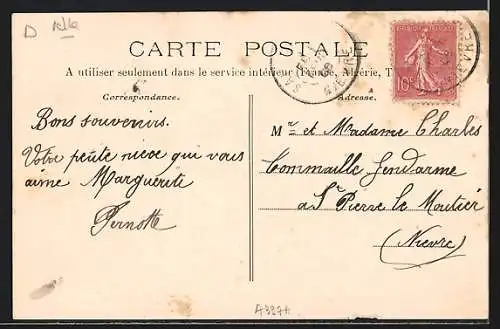 D
CARTE POSTALE
A utiliser seulement dans le service intérieur (France, Algérie, T
Correspondance.
Adresse.
10c
Bons souvenirs.
Votre petite niece qui vous
aime Marguerite
Pernotte
Mr et Madame Charles
Commaille Gendarme
a St Pierre le Moutier
(Nievre)